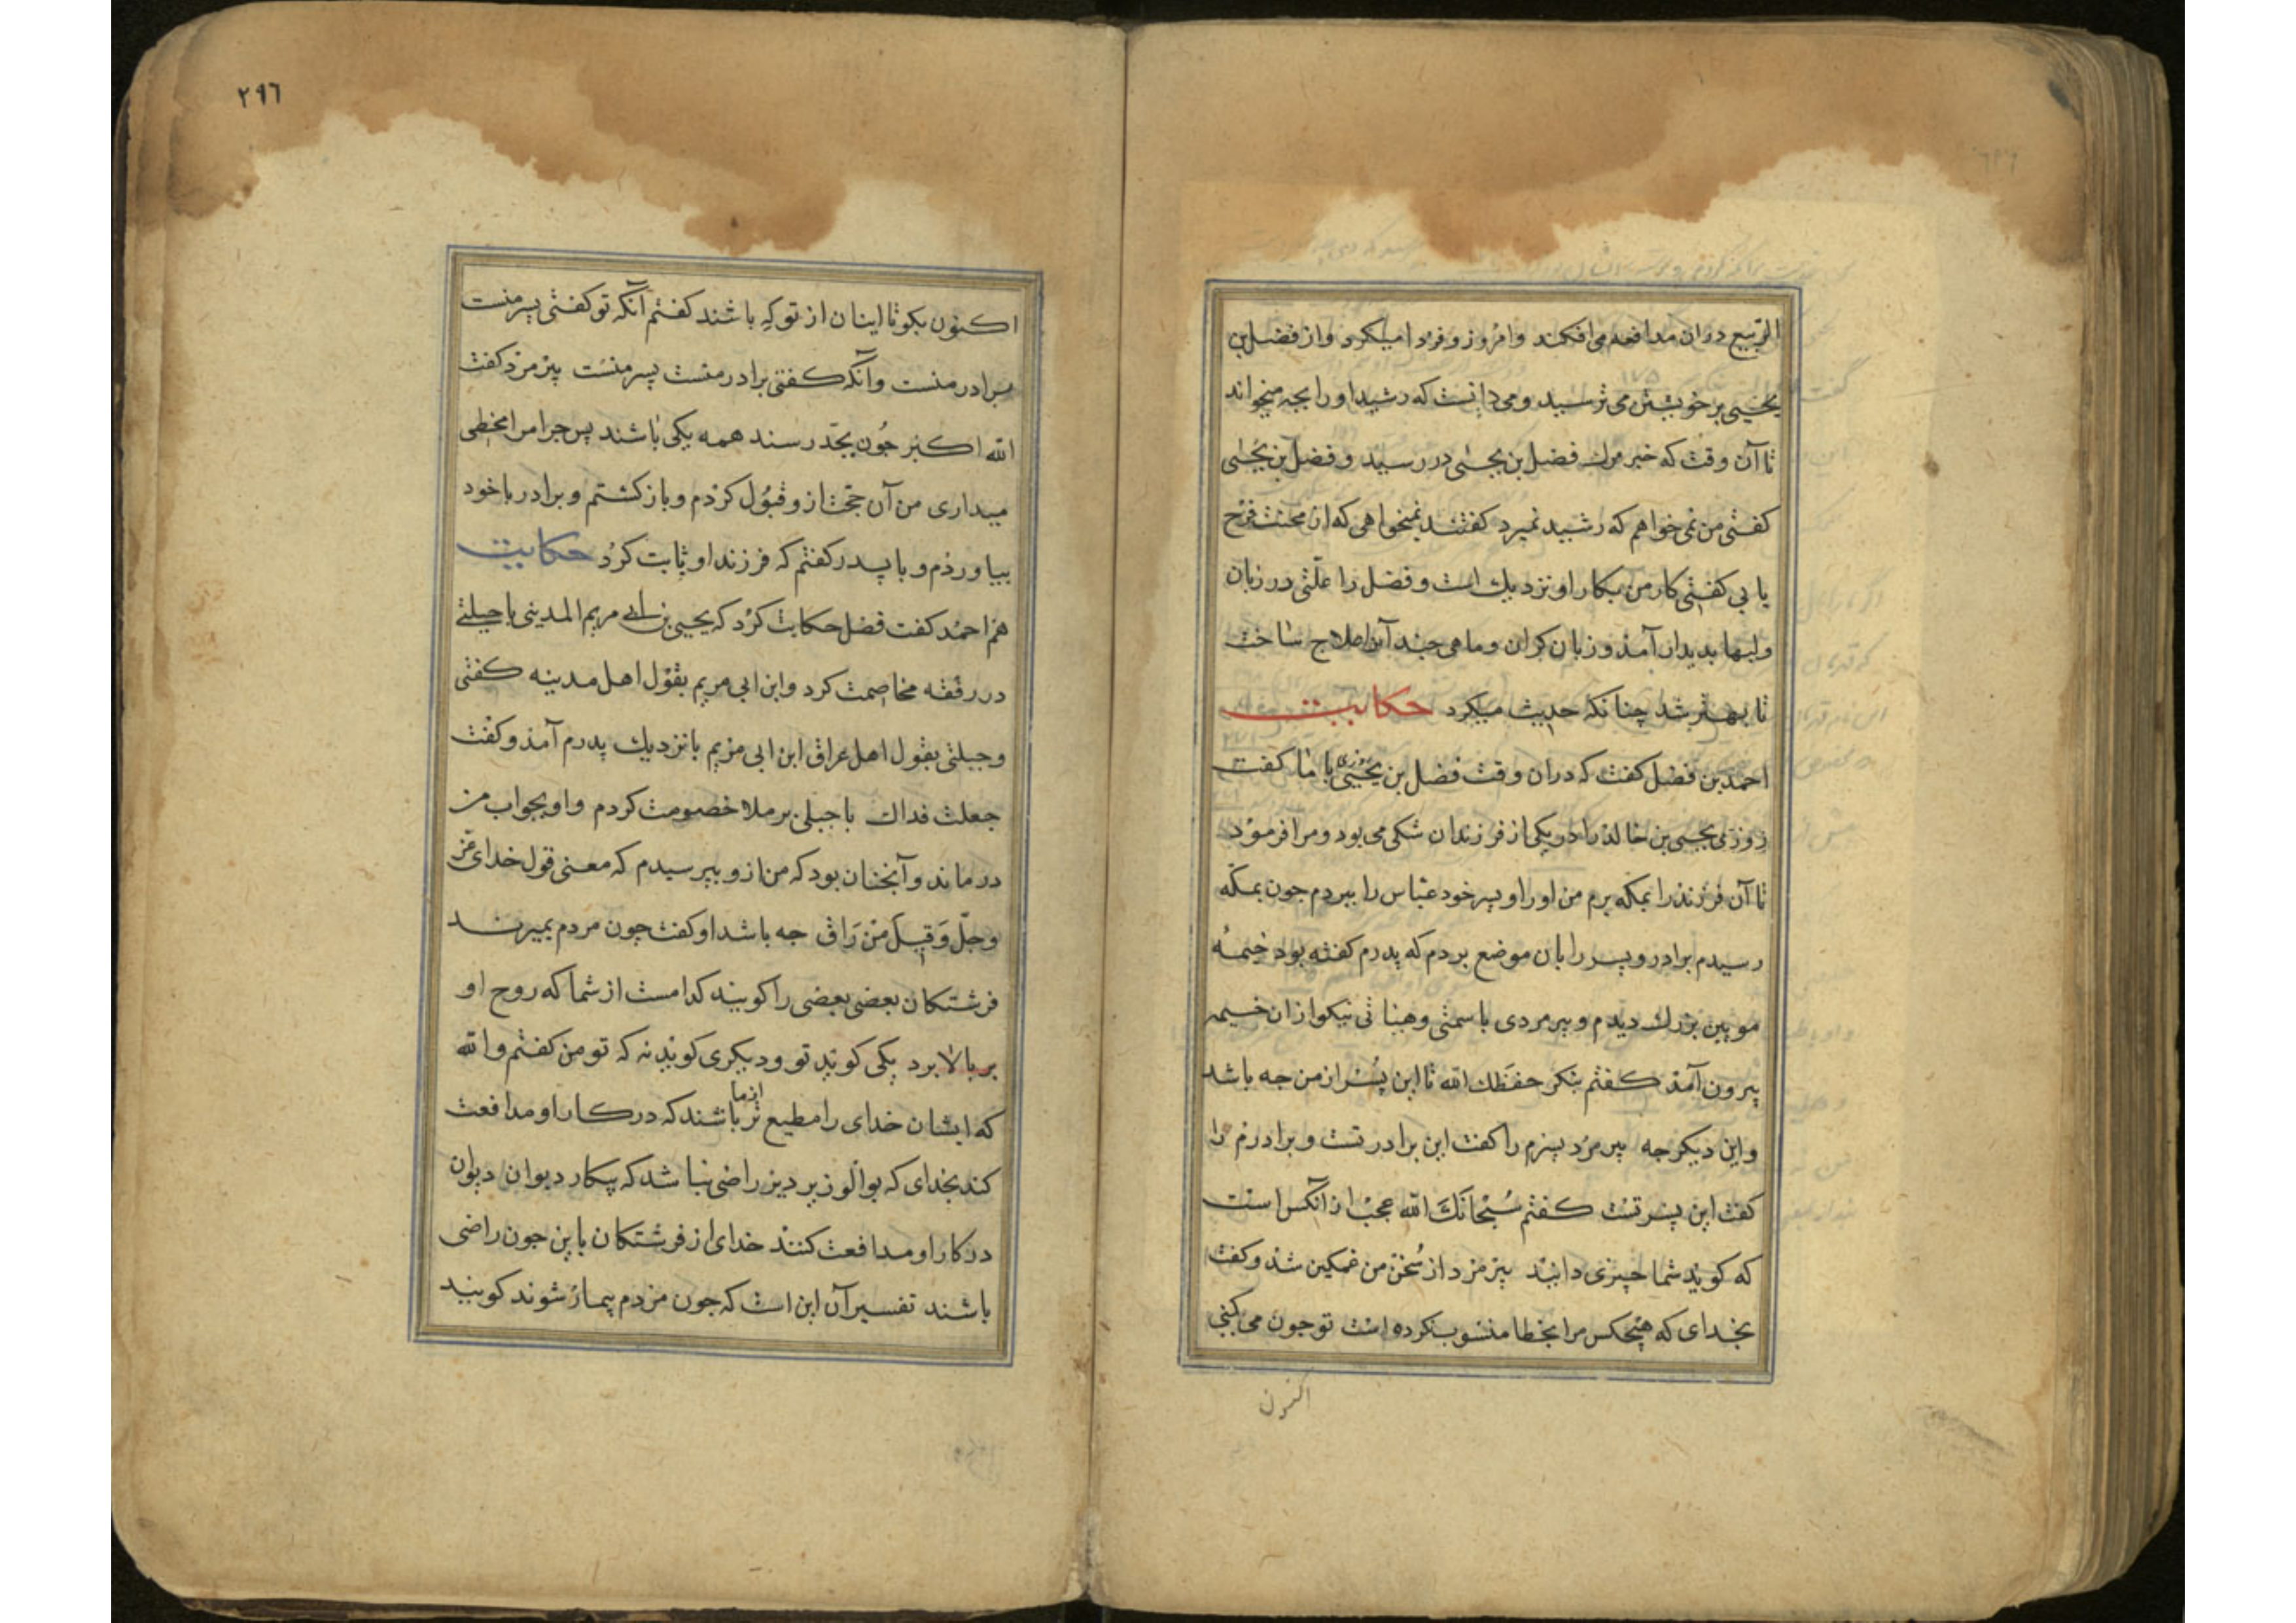 الربیع دران مدافعه می‌افکند وامروز وفردا میکرد واز فضل بن
یحیی بر خویشتن می ترسید ومی دانست که رشید اورا بجه میخواند
تا آن وقت که خبر مرك فضل بن یحیی در رسید وفضل بن یحیی
کفتی من نمی خواهم که رشید نمیرد کفتند نمیخواهی که از محنت فرح
یابی کفتی کار من بکار او نزدیك است وفضل را علّتی در زبان
ولبها بدیدار آمذ وزبان کران وماهی چند آنرا علاج ساخت
تا بهتر شد چنانکه حدیث میکرد حکایت
احمد بن فضل کفت که دران وقت فضل بن یحیی با ما کفت
روزی یحیی بن خالد را در یکی از فرزندان شکی می بود ومرا فرمود
تا آن فرزند را بمکه برم من اورا وپسر خود عبّاس را ببردم جون بمکّه
رسیدم برادر وپسر را بان موضع بردم که پدرم کفته بود خیمهٔ
مویین بزرك دیدم وپیر مردی با سمتی وهیاتی نیکو ازان خیمه
بیرون آمذ کفتم بنکر حفظك الله تا این پسر از من جه باشد
واین دیکر جه پیر مرد پسرم را کفت این برادر تست وبرادرم را
کفت این پسر تست کفتم سُبْحَانَكَ الله عجب از آنکس است
که کوید شما چیزی دانید پیر مرد از سُخن من غمکین شد وکفت
بخدای که هیچکس مرا بخطا منسوب نکرده است تو جون می کنی
اکنون
٢٩٦
اکنون بکو تا اینان از تو کِه باشند کفتم آنکه تو کفتی پسر منست
برادر منست وآنکه کفتی برادر منست پسر منست پیر مرد کفت
الله اکبر جُون بجّد رسند همه یکی باشند پس جرا مرا مخطی
میداری من آن حجّت ازو قبُول کردم وباز کشتم وبرادر با خود
بیاوردم وبا پدر کفتم که فرزند او ثابت کرد حکایت
هم احمد کفت فضل حکایت کرد که یحیی بن ابی مریم المدینی با جبلتی
در رفقه مخاصمت کرد وابن ابی مریم بقول اهل مدینه کفتی
وجبلتی بقول اهل عراق ابن ابی مریم بانزدیك پدرم آمذ وکفت
جعلت فداك با جبلی بر ملا خصومت کردم واو بجواب من
در ماند وآنجنان بود که من ازو بپرسیدم که معنی قول خدای عزّ
وجلّ وَقِیلَ مَنْ رَاق جه باشد او کفت چون مردم بمیرند
فرشتکان بعضی بعضی را کویند کدامست از شما که روح او
بر بالا برد یکی کوید تو ودیکری کوید نه که تو من کفتم والله
که ایشان خدای را مطیع تر از ما باشند که در کار او مدافعت
کند بخدای که بوالوزیر دیز راضی نباشد که بیکار دیوان دیوان
در کار او مدافعت کنند خدای از فرشتکان باین جون راضی
باشند تفسیر آن این است که جون مردم بیمار شوند کویند